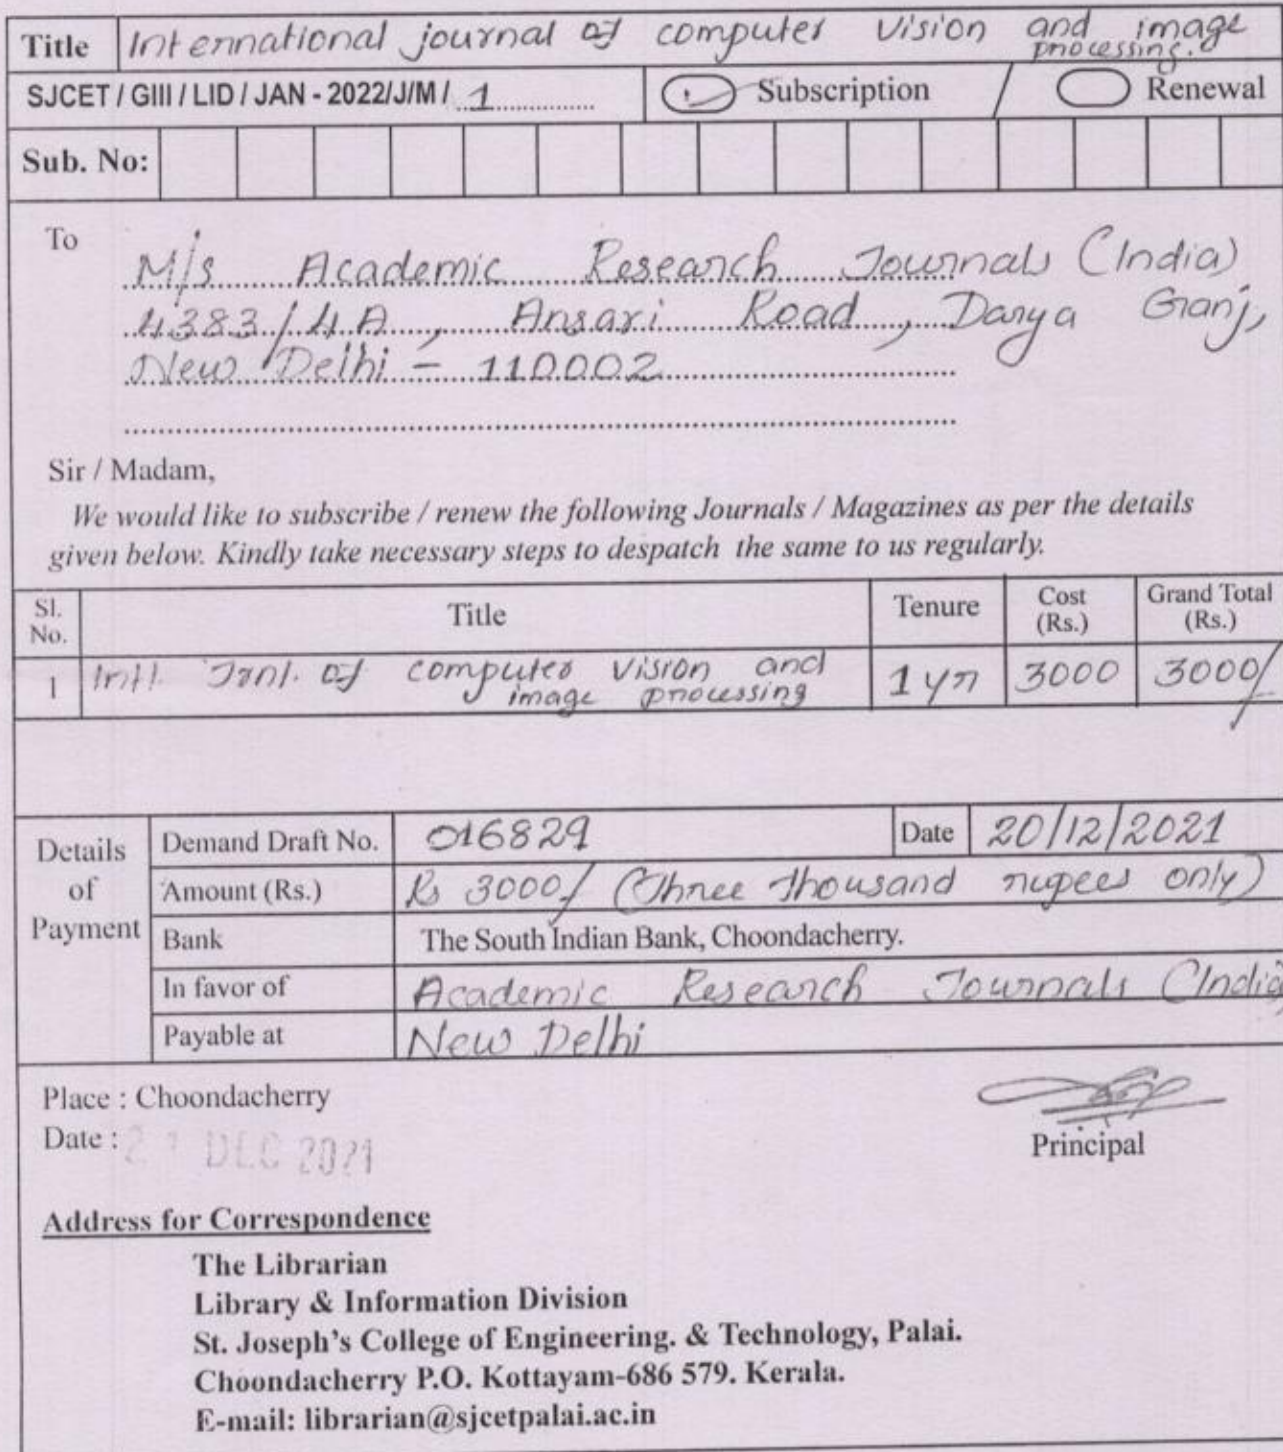 Title International journal of computer vision and image processing.
SJCET / GIII / LID / JAN - 2022/J/M / 1 Subscription / Renewal
Sub. No:
To
M/s Academic Research Journals (India)
4383/4A, Ansari Road, Darya Ganj,
New Delhi - 110002
Sir / Madam,
We would like to subscribe / renew the following Journals / Magazines as per the details
given below. Kindly take necessary steps to despatch the same to us regularly.
Sl. No. Title Tenure Cost (Rs.) Grand Total (Rs.)
1 Intl. Jrnl. of computer vision and image processing 1 yr 3000 3000/
Details of Payment
Demand Draft No. 016829 Date 20/12/2021
Amount (Rs.) Rs 3000/ (Three thousand rupees only)
Bank The South Indian Bank, Choondacherry.
In favor of Academic Research Journals (India)
Payable at New Delhi
Place : Choondacherry
Date : 21 DEC 2021
Principal
Address for Correspondence
The Librarian
Library & Information Division
St. Joseph's College of Engineering. & Technology, Palai.
Choondacherry P.O. Kottayam-686 579. Kerala.
E-mail: librarian@sjcetpalai.ac.in